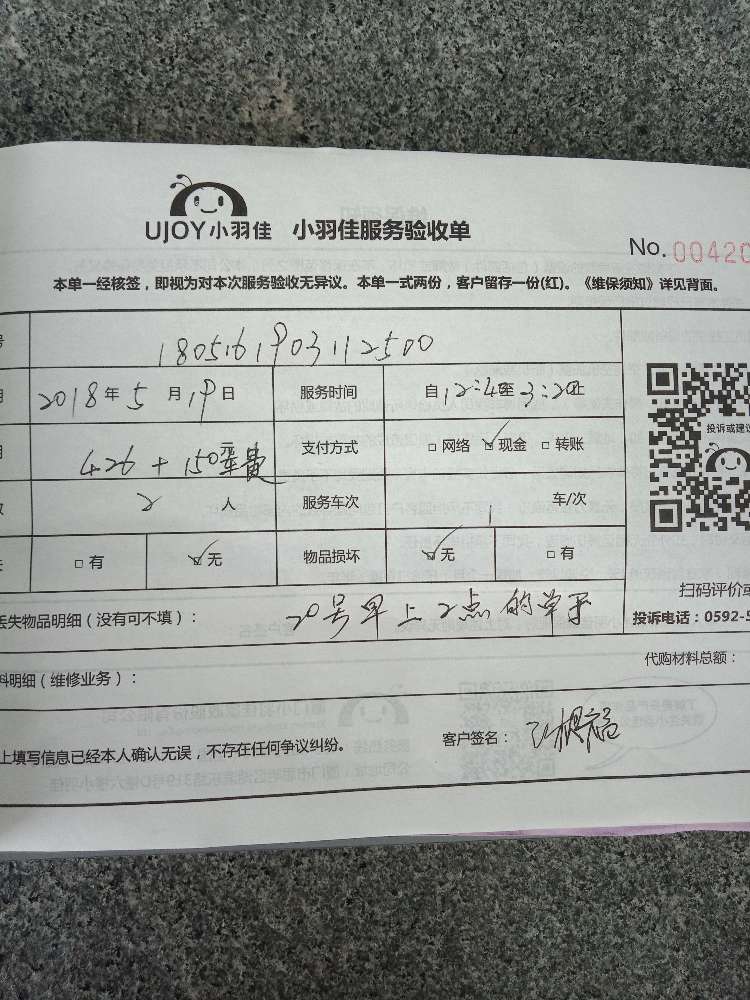 UJOY小羽佳 小羽佳服务验收单
No. 00420
本单一经核签，即视为对本次服务验收无异议。本单一式两份，客户留存一份(红)。《维保须知》详见背面。
号 1805161903112500
2018年5月19日 服务时间 自12:40至3:20止
426+150元车费 支付方式 □网络 ☑现金 □转账
投诉或建议
2人 服务车次 1车/次
□有 ☑无 物品损坏 ☑无 □有
扫码评价或
丢失物品明细（没有可不填）： 20号早上2点的单子 投诉电话：0592-5
代购材料总额：
料明细（维修业务）：
上填写信息已经本人确认无误，不存在任何争议纠纷。 客户签名：